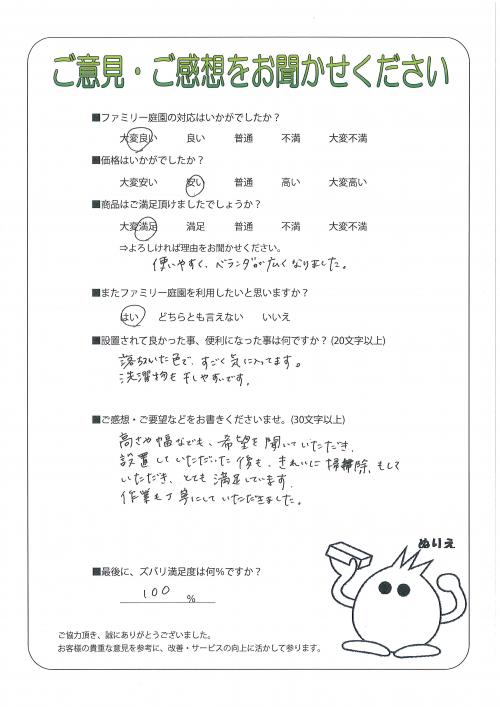 ご意見・ご感想をお聞かせください
■ファミリー庭園の対応はいかがでしたか？
大変良い 良い 普通 不満 大変不満
■価格はいかがでしたか？
大変安い 安い 普通 高い 大変高い
■商品はご満足頂けましたでしょうか？
大変満足 満足 普通 不満 大変不満
⇒よろしければ理由をお聞かせください。
使いやすく、ベランダが広くなりました。
■またファミリー庭園を利用したいと思いますか？
はい どちらとも言えない いいえ
■設置されて良かった事、便利になった事は何ですか？(20文字以上)
落ちついた色で、すごく気に入ってます。
洗濯物も干しやすいです。
■ご感想・ご要望などをお書きくださいませ。(30文字以上)
高さや幅なども、希望を聞いていただき、
設置していただいた後も、きれいに掃除もして
いただき、とても満足しています。
作業も丁寧にしていただきました。
ぬりえ
■最後に、ズバリ満足度は何％ですか？
100 %
ご協力頂き、誠にありがとうございました。
お客様の貴重な意見を参考に、改善・サービスの向上に活かして参ります。